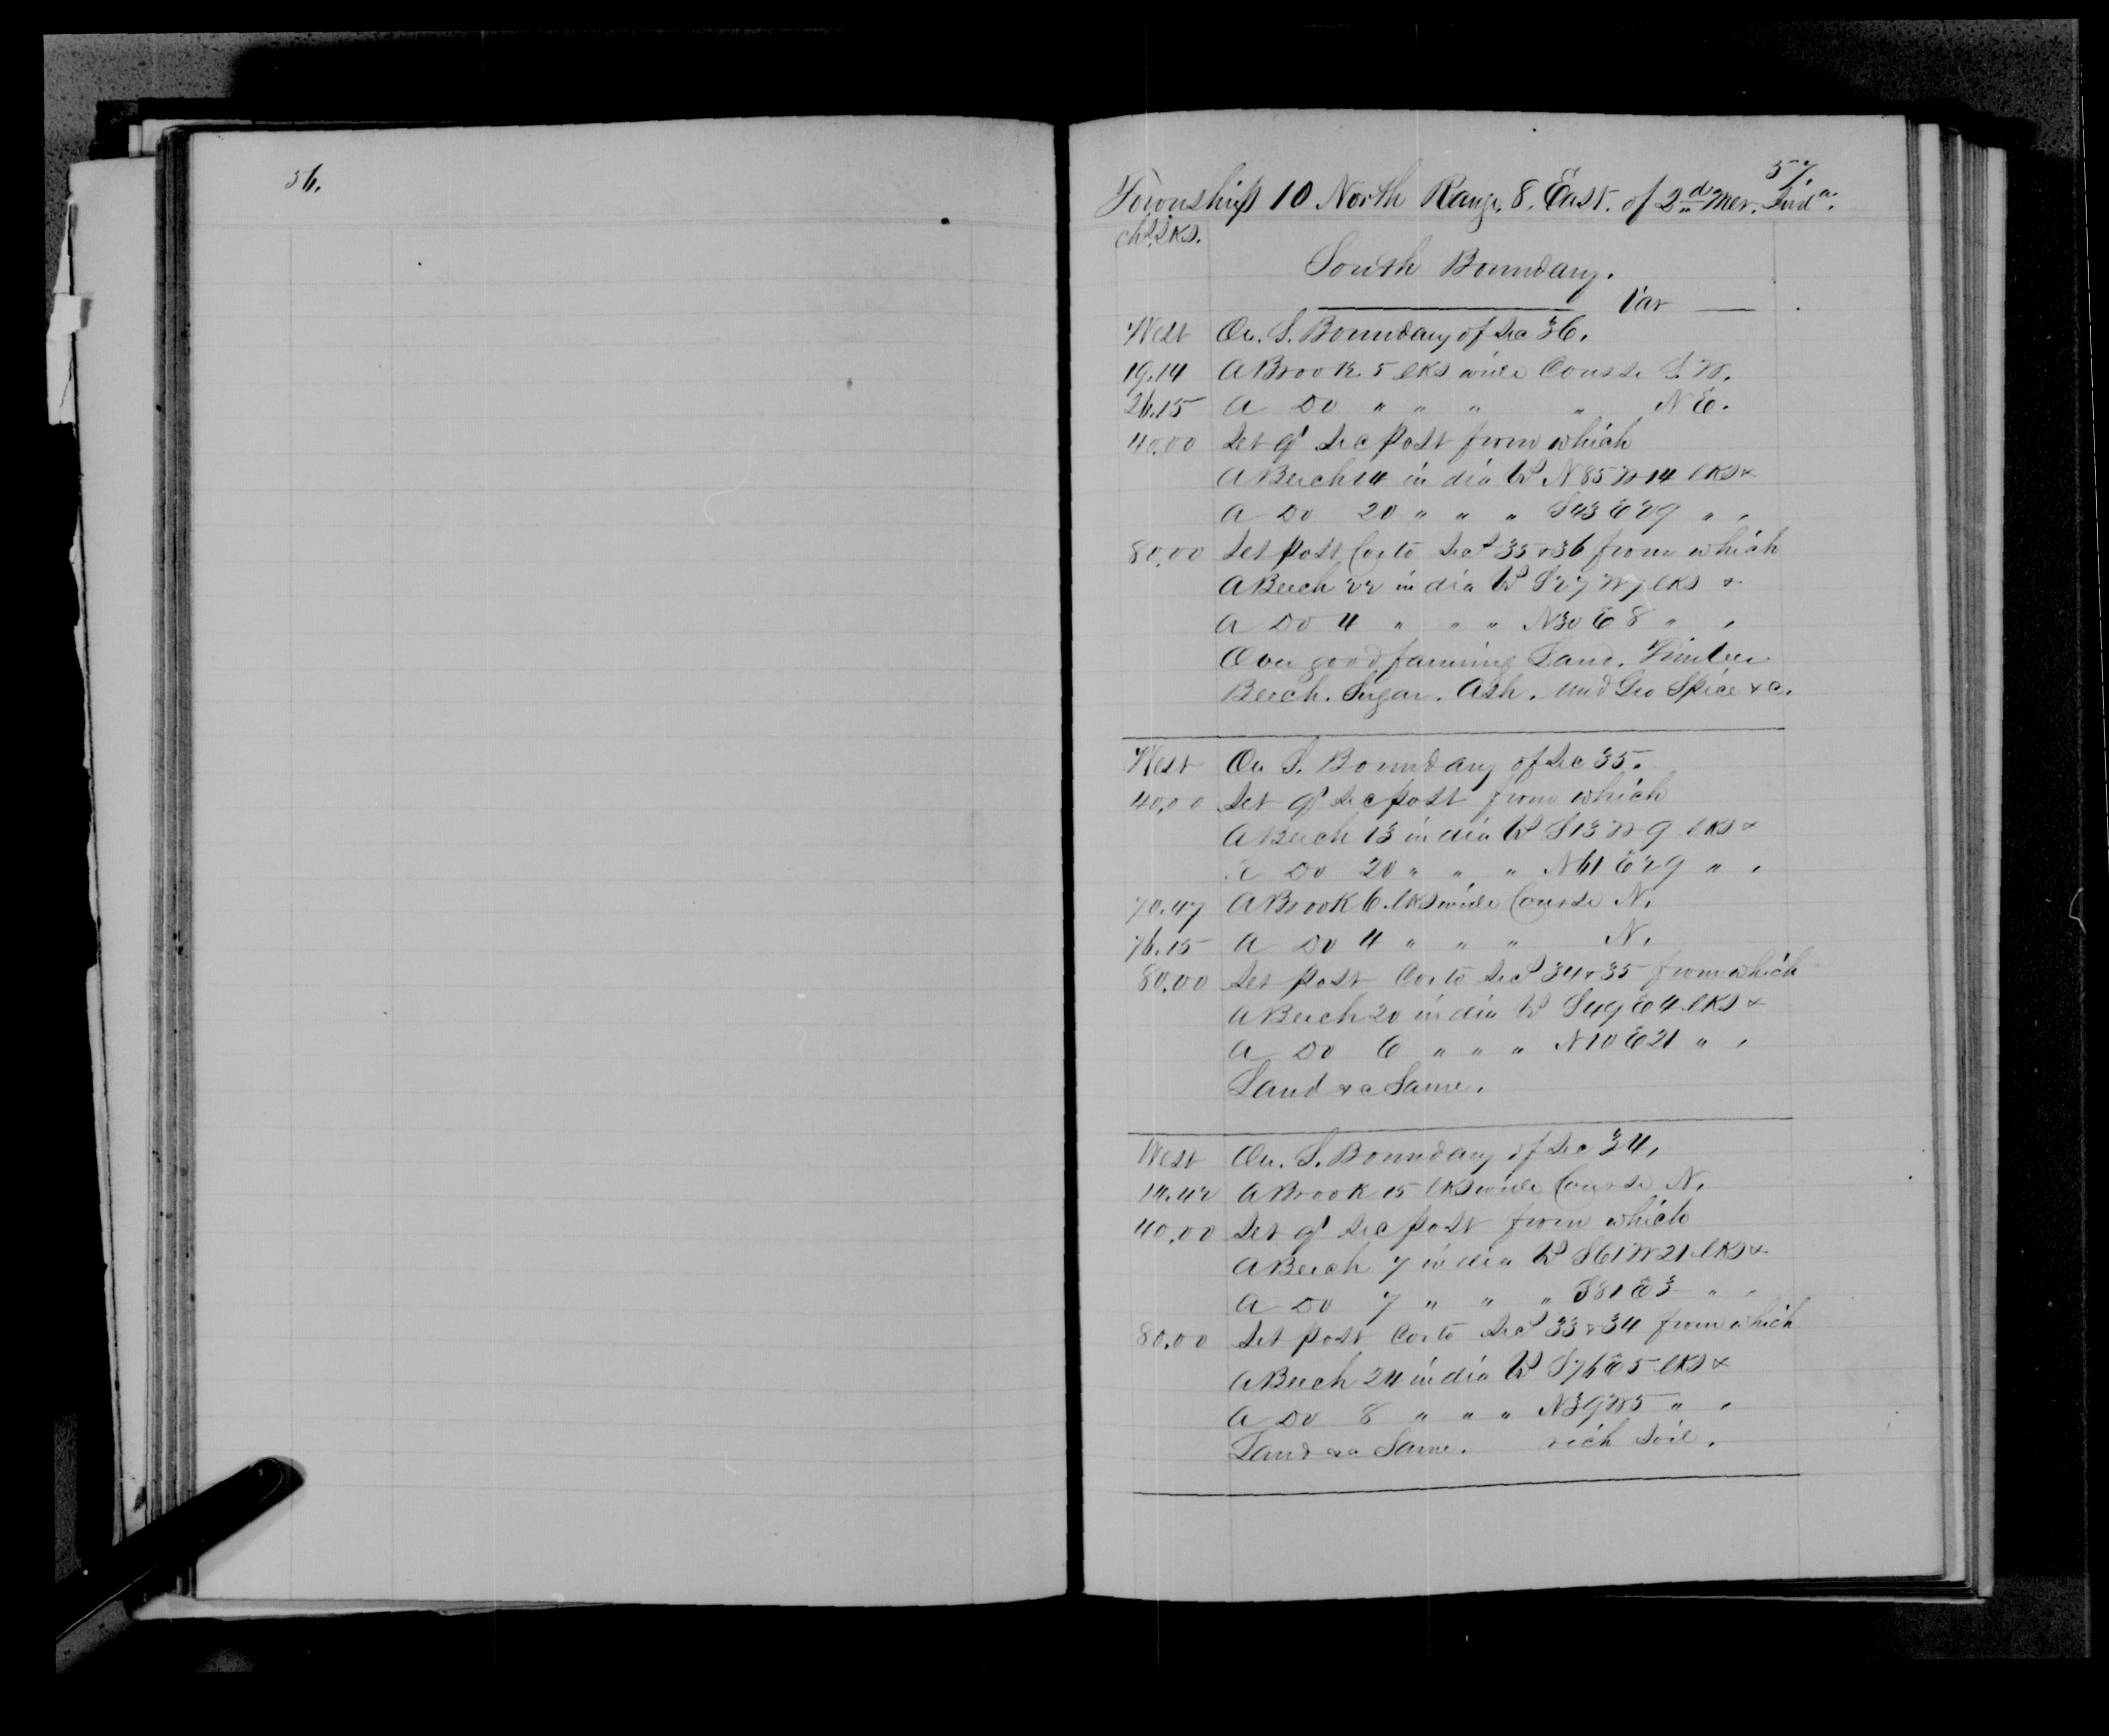 56.
57
Township 10 North Range 8. East. of 2nd Mer. Inda.
chs. lks.
South Boundary.
Var
West On. S. Boundary of Sec 36.
19.14 A Brook 5 lks wide Course S.W.
26.15 A Do " " " " N E.
40.00 Set qr Sec post from which
A Beech 14 in dia bs N 85 W 14 lks &
A Do 20 " " " S 43 E 29 " "
80.00 Set post Cor to Secs 35 & 36 from which
A Beech 22 in dia bs S 27 W 7 lks &
A Do 4 " " " N 30 E 8 " "
Over good farming Land. Timber
Beech. Sugar. Ash. und Gro Spice &c.
West On S. Boundary of Sec 35.
40.00 Set qr Sec post from which
A Beech 13 in dia bs S 13 W 9 lks &
A Do 20 " " " N 61 E 29 " "
70.47 A Brook 6 lks wide Course N.
76.15 A Do 4 " " " N.
80.00 Set post Cor to Secs 34 & 35 from which
A Beech 20 in dia bs S 49 E 4 lks &
A Do 6 " " " N 10 E 21 " "
Land &c Same.
West On. S. Boundary of Sec 34.
14.42 A Brook 15 lks wide Course N.
40.00 Set qr Sec post from which
A Beech 7 in dia bs S 61 W 21 lks &
A Do 7 " " " S 81 E 3 " "
80.00 Set post Cor to Secs 33 & 34 from which
A Beech 24 in dia bs S 76 E 5 lks &
A Do 8 " " " N 39 W 5 " "
Land &c Same. rich soil.